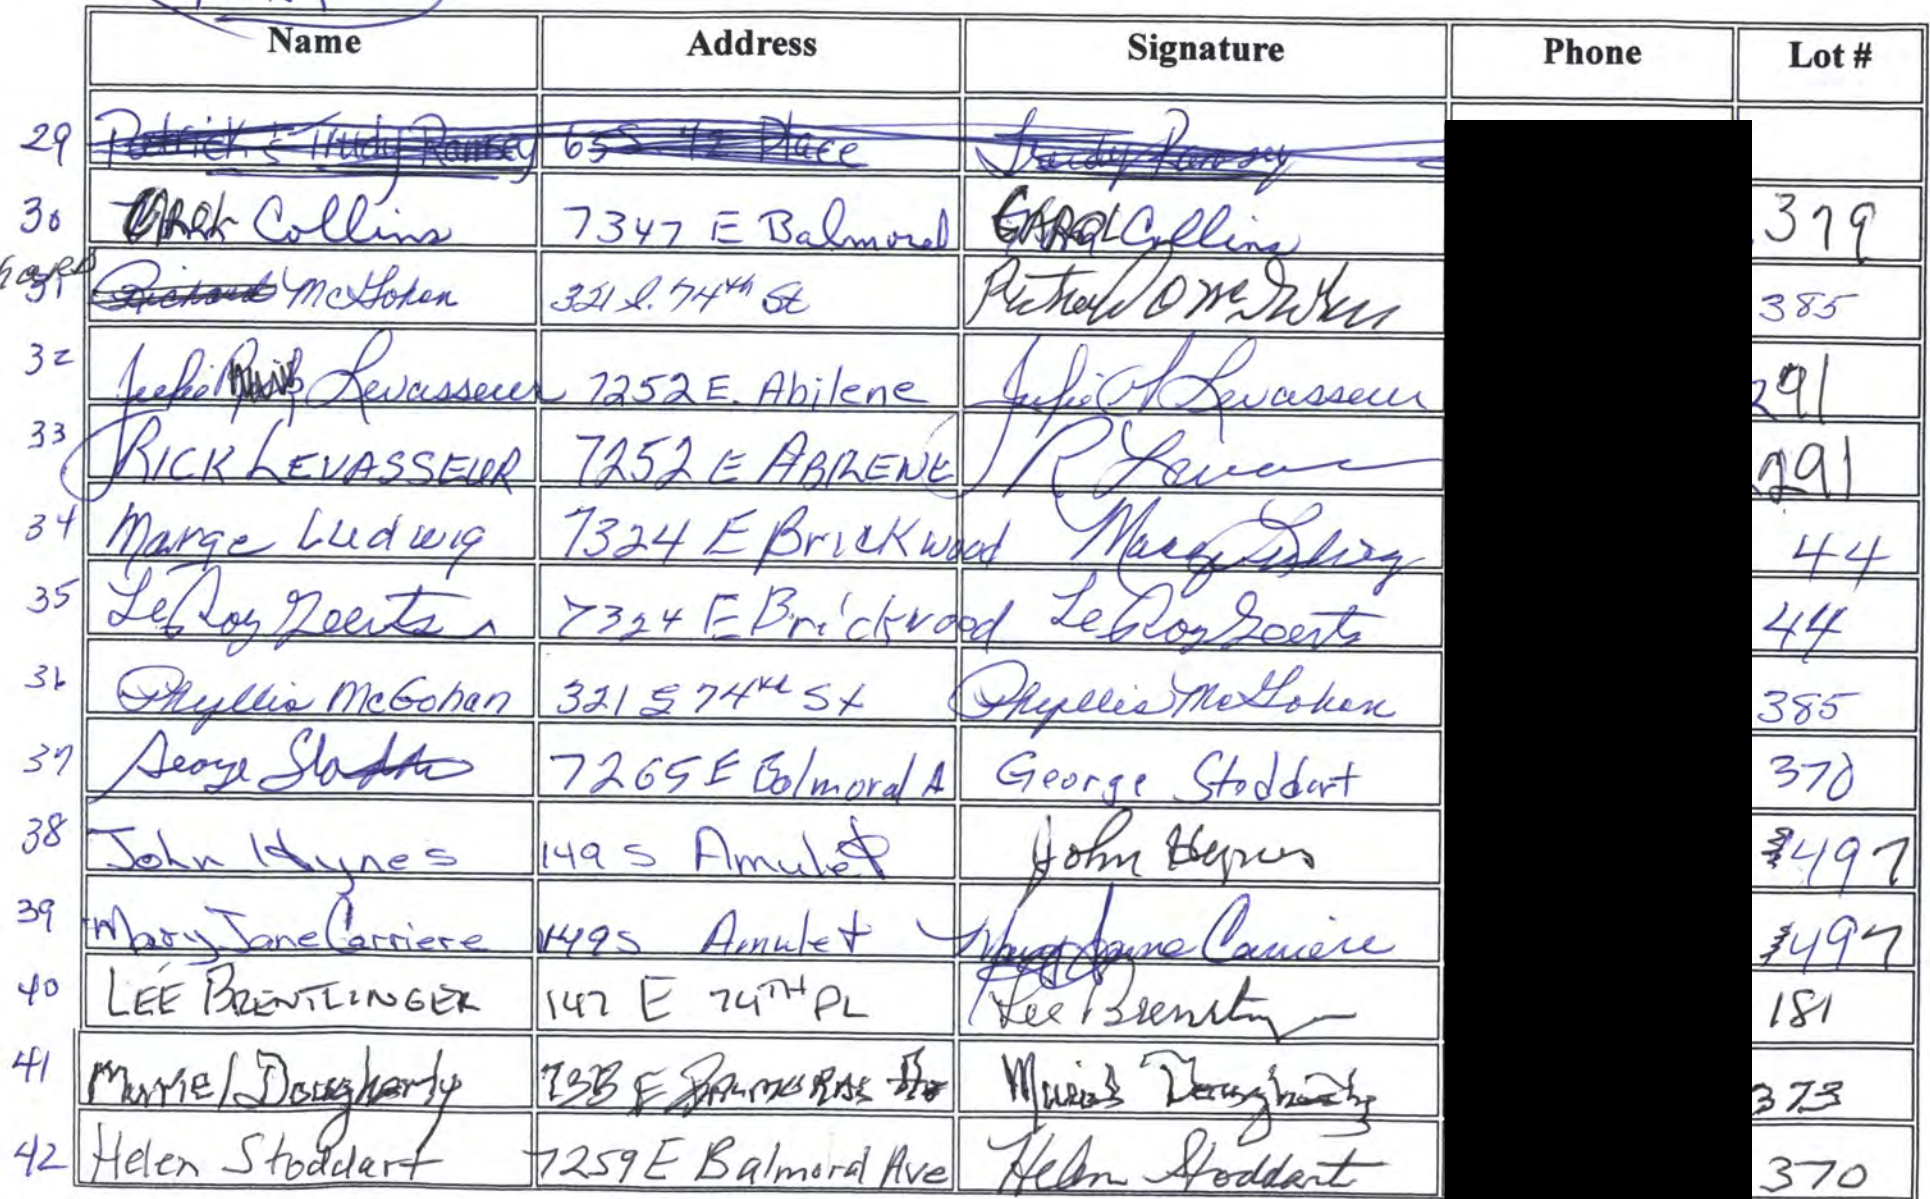 Name Address Signature Phone Lot #
29 Patrick & Trudy Ramsey 65 S 72 Place Trudy Ramsey
30 Carol Collins 7347 E Balmoral CAROL Collins 379
31 Richard McGohan 321 S. 74th St 385
32 Julie Levasseur 7252 E. Abilene Julie A Levasseur 291
33 RICK LEVASSEUR 7252 E ABILENE R 291
34 Marge Ludwig 7324 E Brickwood Marge Ludwig 44
35 LeRoy Goertz 7324 E Brickwood LeRoy Goertz 44
36 Phyllis McGohan 321 S 74th St Phyllis McGohan 385
37 George 7265 E Balmoral A George Stoddart 370
38 John Hynes 149 S Amulet John Hynes 497
39 Mary Jane Carriere 149 S Amulet Mary Jane Carriere 497
40 LEE BRENTLINGER 147 E 74TH PL Lee 181
41 Murriel Dougherty E 373
42 Helen Stoddart 7259 E Balmoral Ave Helen Stoddart 370